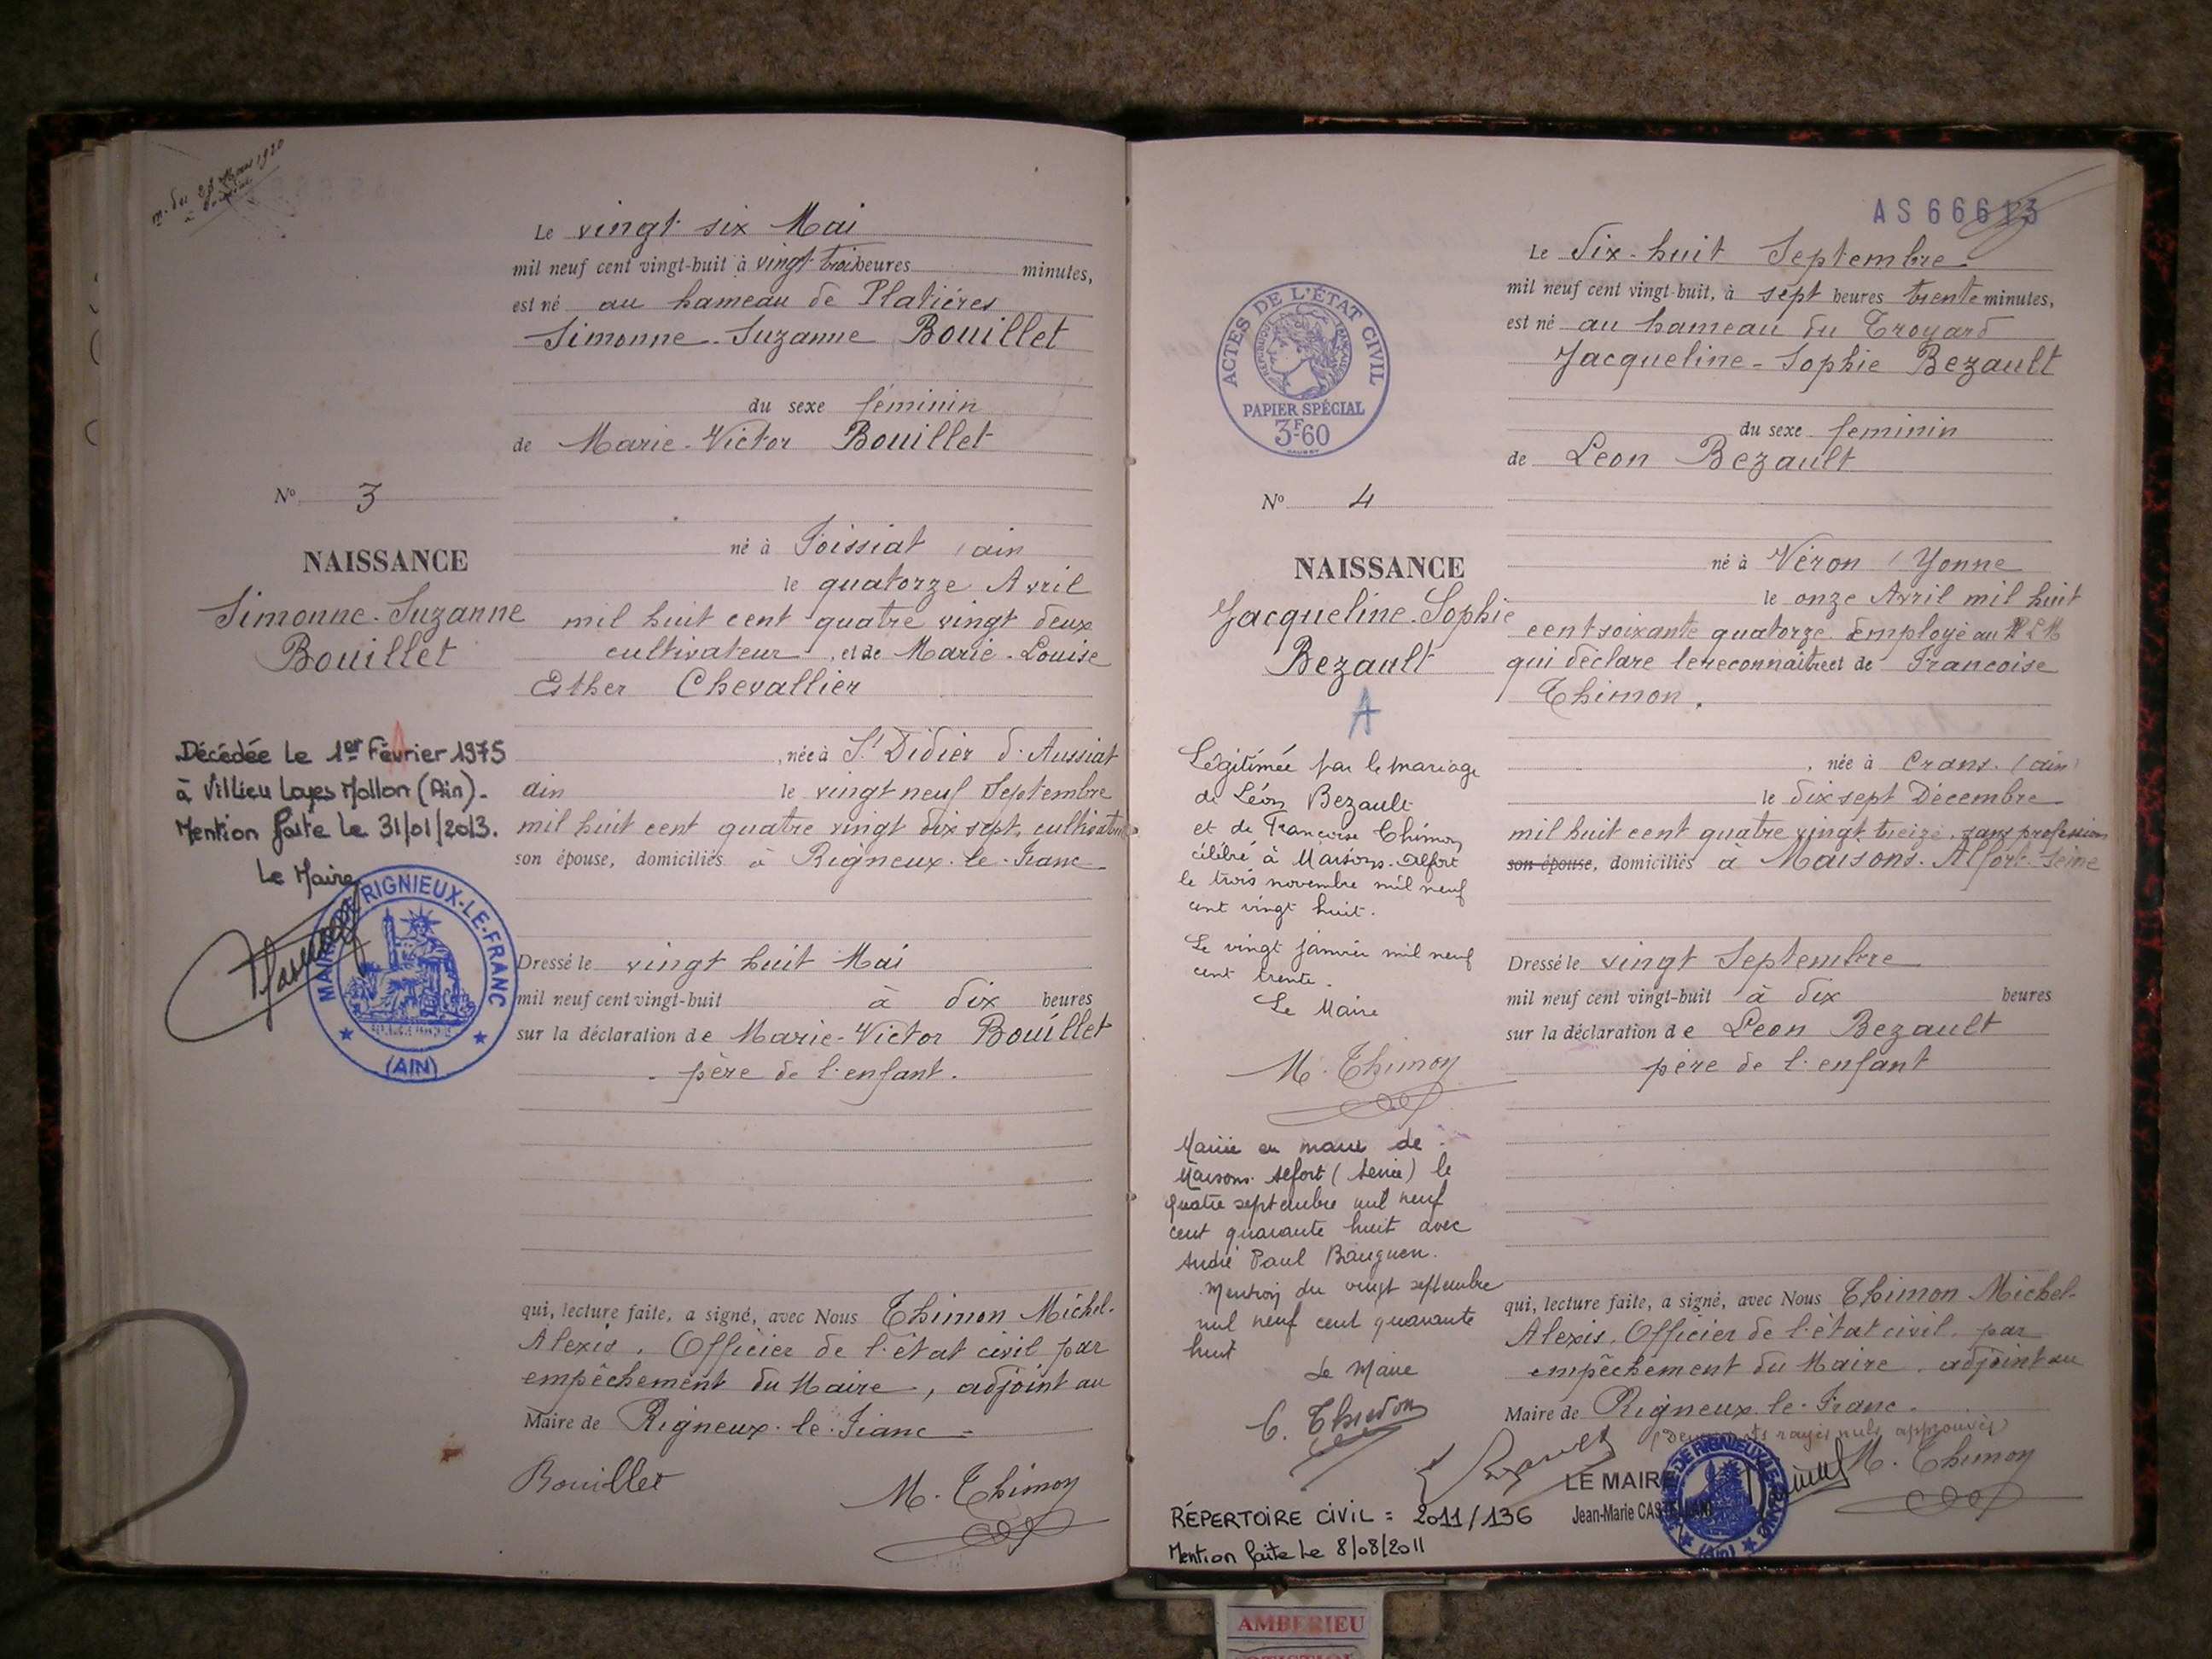 m. du 28 Mars 1920
Le vingt six Mai
mil neuf cent vingt-huit à vingt trois heures minutes,
est né au hameau de Platières
Simonne-Suzanne Bouillet
du sexe féminin
de Marie-Victor Bouillet
N° 3
NAISSANCE
Simonne-Suzanne
Bouillet
né à Foissiat ain
le quatorze Avril
mil huit cent quatre vingt deux
cultivateur, et de Marie-Louise
Esther Chevallier
Décédée le 1er Février 1975
à Villieu Loyes Mollon (Ain).
Mention faite le 31/01/2013.
Le Maire
MAIRIE RIGNIEUX-LE-FRANC
(AIN)
A
, née à St Didier d'Aussiat
ain le vingt neuf Septembre
mil huit cent quatre vingt dix sept, cultivatrice
son épouse, domiciliés à Rigneux-le-Franc
Dressé le vingt huit Mai
mil neuf cent vingt-huit à dix heures
sur la déclaration de Marie-Victor Bouillet
père de l'enfant.
qui, lecture faite, a signé, avec Nous Thimon Michel-
Alexis, Officier de l'état civil par
empêchement du Maire, adjoint au
Maire de Rigneux-le-Franc
Bouillet M. Thimon
AS66613
ACTES DE L'ÉTAT CIVIL
RÉPUBLIQUE FRANÇAISE
PAPIER SPÉCIAL
3F60
Le dix-huit Septembre
mil neuf cent vingt-huit, à sept heures trente minutes,
est né au hameau du Troyard
Jacqueline-Sophie Bezault
du sexe feminin
de Leon Bezault
N° 4
NAISSANCE
Jacqueline-Sophie
Bezault
A
né à Véron (Yonne
le onze Avril mil huit
cent soixante quatorze employé au PLM
qui déclare le reconnaitre et de Francoise
Thimon.
, née à Crans. (ain)
le dix sept Décembre
mil huit cent quatre vingt treize, sans profession
son épouse, domiciliés à Maisons-Alfort-Seine
Dressé le vingt Septembre
mil neuf cent vingt-huit à dix heures
sur la déclaration de Leon Bezault
père de l'enfant
Légitimée par le mariage
de Léon Bezault
et de Francoise Thimon
célébré à Maisons-Alfort
le trois novembre mil neuf
cent vingt huit.
Le vingt janvier mil neuf
cent trente.
Le Maire
M. Thimon
Mariée en mairie de
Maisons-Alfort (Seine) le
quatre septembre mil neuf
cent quarante huit avec
André Paul
Mention du vingt septembre
mil neuf cent quarante
huit
Le Maire
C. Thimon
qui, lecture faite, a signé, avec Nous Thimon Michel-
Alexis, Officier de l'état civil par
empêchement du Maire, adjoint au
Maire de Rigneux-le-Franc.
(Deux mots rayés nuls approuvés)
M. Thimon
LE MAIRE
Jean-Marie
RÉPERTOIRE CIVIL = 2011/136
Mention faite le 8/08/2011
AMBERIEU